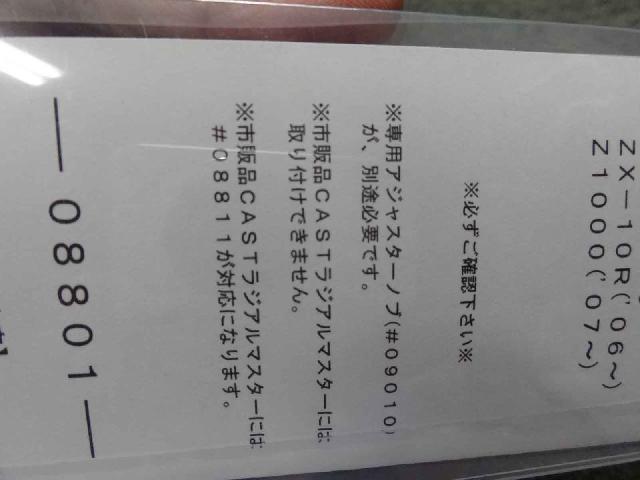 ZX－10R('06～)
Z1000('07～)
※必ずご確認下さい※
※専用アジャスターノブ(#09010)
が、別途必要です。
※市販品CASTラジアルマスターには
取り付けできません。
※市販品CASTラジアルマスターには
#08811が対応になります。
―08801―